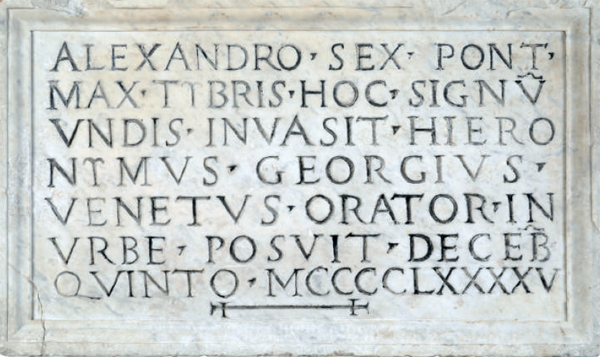 ALEXANDRO · SEX · PONT ·
MAX · TYBRIS · HOC · SIGNṼ
VNDIS · INVASIT · HIERO
NYMVS · GEORGIVS ·
VENETVS · ORATOR · IN
VRBE · POSVIT · DECEB̃
QVINTO · MCCCCLXXXXV